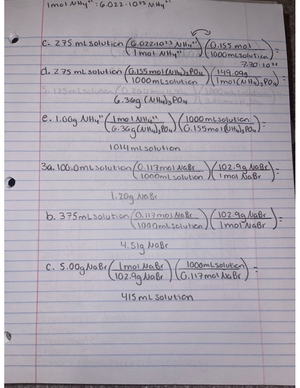 1mol NH4+ : 6.022·10²³ NH4+
c. 275 mL solution (6.022·10²³ NH4+ / 1mol NH4+) (0.155 mol / 1000 mL solution) =
d. 275 mL solution (0.155mol (NH4)3PO4 / 1000 mL solution) (149.09g / 1mol (NH4)3PO4) =
6.36g (NH4)3PO4
e. 1.00g NH4+ (1mol NH4+ / 6.36g (NH4)3PO4) (1000mL solution / 0.155mol (NH4)3PO4) =
1014 mL solution
3a. 100.0mL solution (0.117mol NaBr / 1000mL solution) (102.9g NaBr / 1mol NaBr) =
1.20g NaBr
b. 375mL solution (0.117mol NaBr / 1000mL solution) (102.9g NaBr / 1mol NaBr) =
4.51g NaBr
c. 5.00g NaBr (1mol NaBr / 102.9g NaBr) (1000mL solution / 0.117mol NaBr) =
415 mL solution